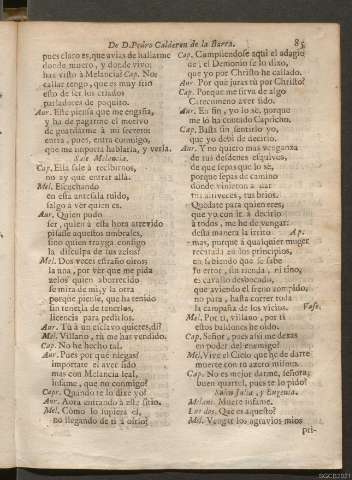 De D. Pedro Calderon de la Barca. 85
pues claro es, que avias de hallarme
donde muero, y donde vivo:
has visto à Melancia? Cap. No:
callar tengo, que es muy frio
esto de ser los criados
parladores de poquito.
Aur. Este piensa que me engaña,
y ha de pagarme el motivo
de guardarme à mi secreto:
entra, pues, entra conmigo,
que me importa hablarla, y verla.
Sale Melancia.
Cap. Ella sale à recibirnos,
no ay que entrar allà.
Mel. Escuchando
en esta antesala ruido,
salgo à vèr quien es.
Aur. Quien pudo
ser, quien à esta hora atrevido
pisasse aquestos umbrales,
sino quien trayga consigo
la disculpa de sus zelos?
Mel. Dos veces estraño oiros;
la una, por vèr que me pida
zelos quien aborrecido
se mira de mi, y la otra
porque piense, que ha tenido
sin tenerla de tenerlos,
licencia para pedirlos.
Aur. Tù à un esclavo quieres, di?
Mel. Villano, tù me has vendido.
Cap. No he hecho tal.
Aur. Pues por què niegas?
importate el aver sido
mas con Melancia leal,
infame, que no conmigo?
Cap. Quando te lo dixe yo?
Aur. Aora entrando à este sitio.
Mel. Còmo lo supiera èl,
no llegando de ti à oirlo?
Cap. Cumpliendose aqui el adagio
de, el Demonio se lo dixo,
que yo por Christo he callado.
Aur. Por què juras tù por Christo?
Cap. Porque me sirva de algo
Catecumeno aver sido.
Aur. En fin, yo lo sè, porque
me lo ha contado Capricho.
Cap. Basta sin sentirlo yo,
que yo debi de decirlo.
Aur. Y no quiero mas venganza
de tus desdenes esquivos,
de que sepas que lo sè,
porque sepas de camino
donde vinieron à dar
tus altiveces, tus brios.
Quedate para quien eres,
que yo con ir à decirlo
à todos, me he de vengar:
desta manera la irrito Ap.
mas, porque à qualquier muger
recatada en los principios,
en sabiendo que se sabe
su error, sin rienda, ni tino,
es cavallo desbocado,
que aviendo el freno rompido,
no para, hasta correr toda
la campaña de los vicios. Vase.
Mel. Por ti, villano, por ti
estos baldones he oido.
Cap. Señor, pues assi me dexas
en poder del enemigo?
Mel. Vive el Cielo que he de darte
muerte con tu azero mismo.
Cap. No es mejor darme, señora,
buen quartel, pues te lo pido?
Salen Julia, y Eugenia.
Melan. Muere infame.
Las dos. Que es aquesto?
Mel. Vengar los agravios mios
pri-
SGCB2021